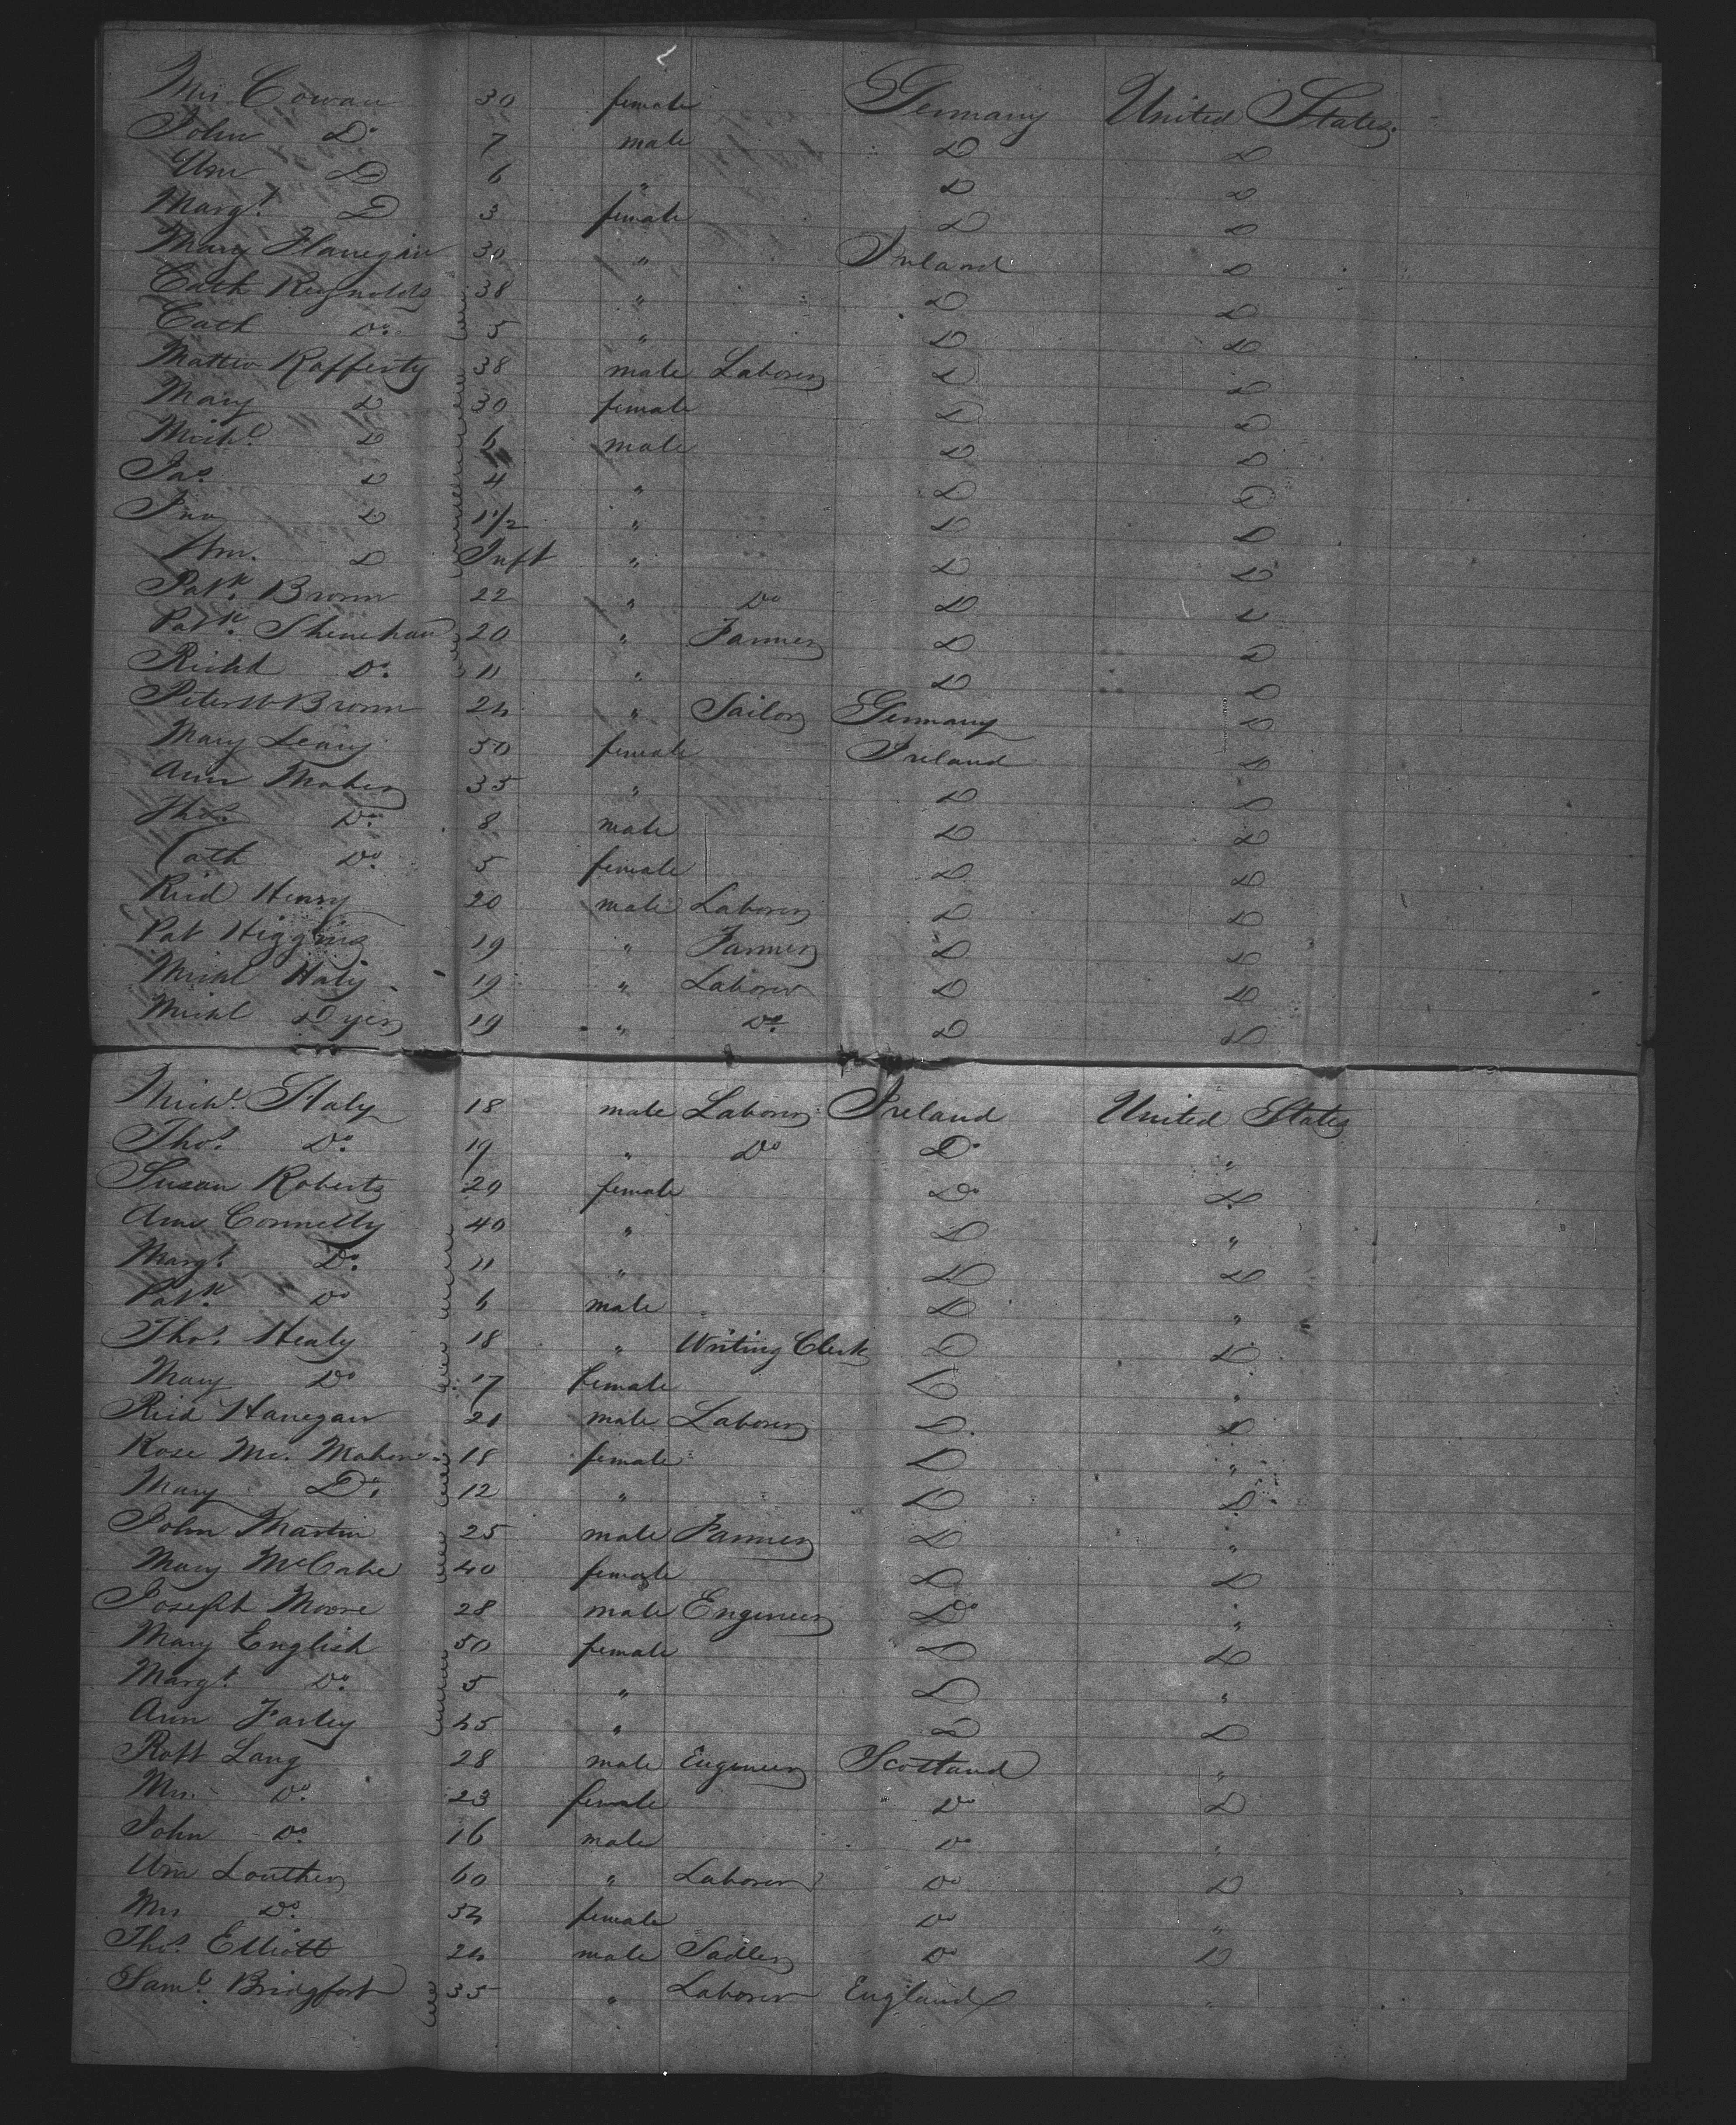 Mrs. Cowan 30 female Germany United States.
John Do 7 male D D
Wm D 6 " D D
Margt. D 3 female D D
Mary Flanegan 30 " Ireland D
Cath Reynolds 38 " D D
Cath Do. 5 " D D
Matteo Rafferty 38 male Laborer D D
Mary D 30 female D D
Michl. D 6 male D D
Jas. D 4 " D D
Jno D 1 1/2 " D D
Wm. D Inft " D D
Patk. Brown 22 " Do D D
Patk. Shenehan 20 " Farmer D D
Richd Do. 11 " D D
Peter W Brown 24 " Sailor Germany D
Mary Leary 50 female Ireland D
Ann Maher 35 " D D
Thos. Do. 8 male D D
Cath Do. 5 female D D
Rich Henry 20 male Laborer D D
Pat Higgins 19 " Farmer D D
Michl Haly 19 " Laborer D D
Michl Dyer 19 " Do. D D
Michl. Haly 18 male Laborer Ireland United States
Thos. Do. 19 " Do Do "
Susan Roberts 20 female Do D
Ann Connelly 40 " D "
Margt. Do. 11 " D D
Patk. Do 6 male D "
Thos. Healy 18 " Writing Clerk D D
Mary Do 17 female D "
Rich Hanegan 21 male Laborer D. D
Rose Mc. Mahon 18 female D "
Mary Do. 12 " D D
John Martin 25 male Farmer D "
Mary McCabe 40 female D D
Joseph Moore 28 male Engineer Do "
Mary English 50 female D D
Margt. Do. 5 " D "
Ann Farley 45 " D D
Robt Lang 28 male Engineer Scotland "
Mrs. Do. 23 female Do D
John Do. 16 male Do "
Wm Louther 60 " Laborer Do D
Mrs Do. 54 female Do "
Thos. Elliott 24 male Sadler Do D
Saml. Bridgfort 35 " Laborer England "